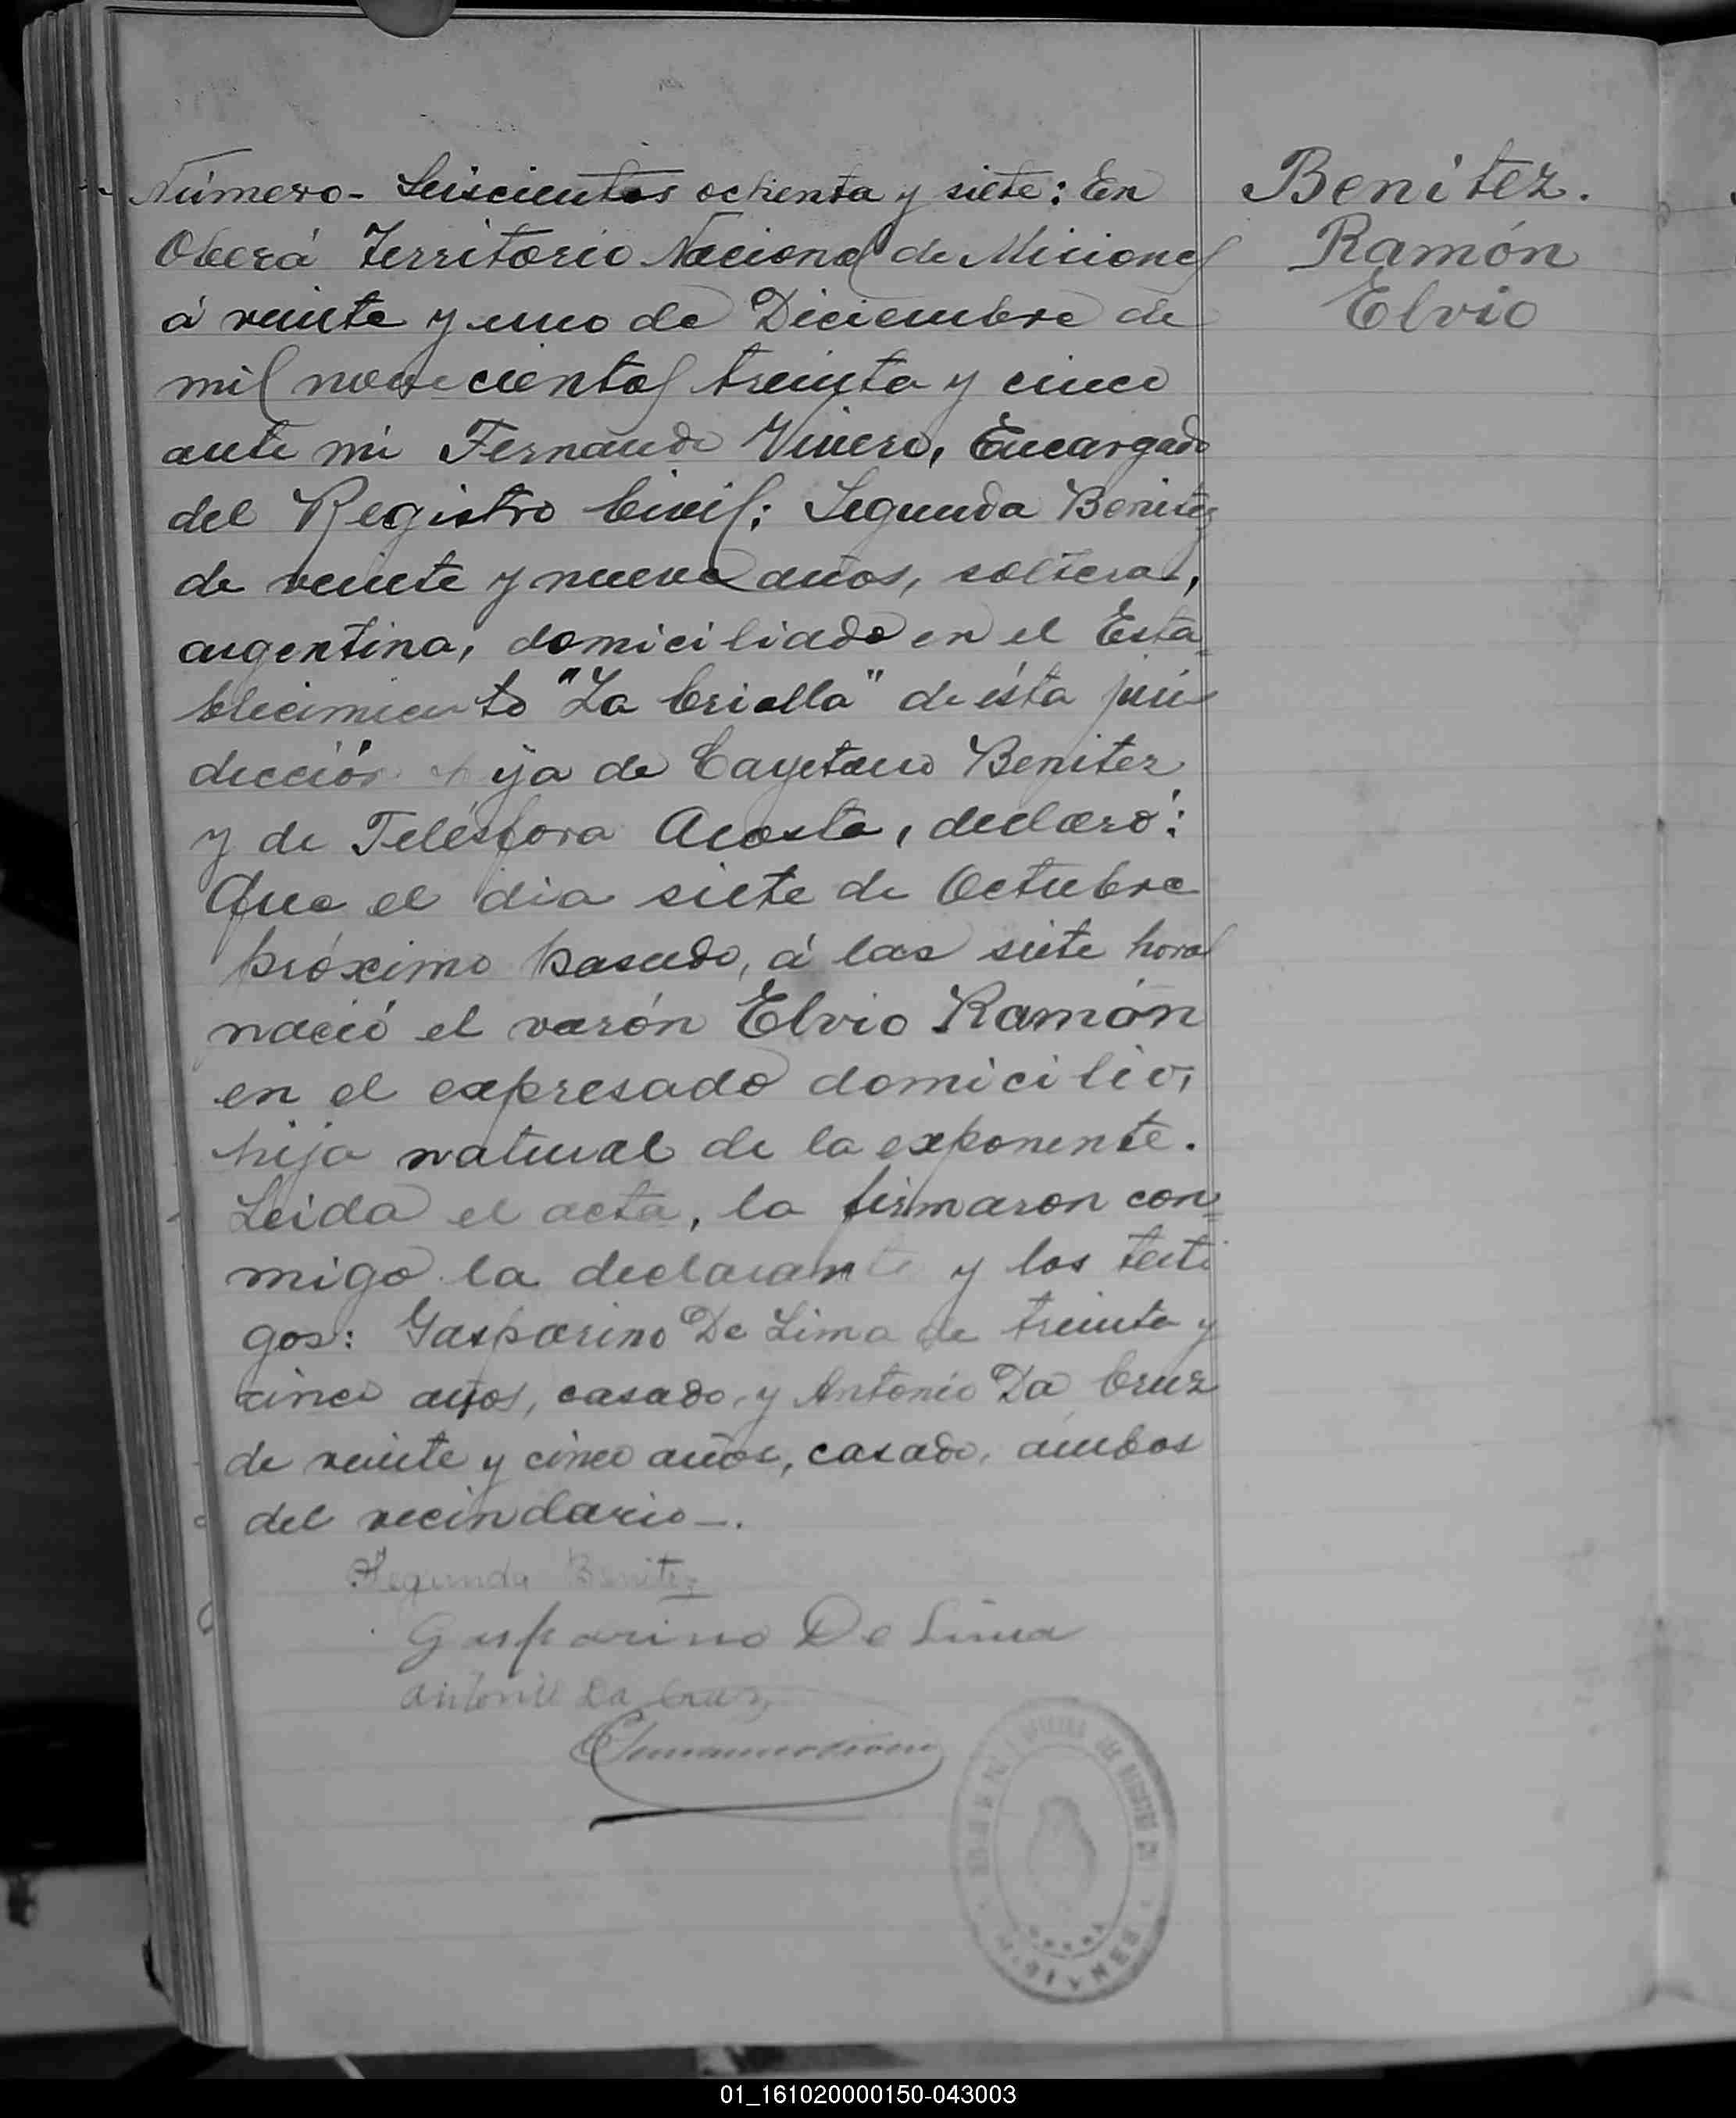 Número - Seiscientos ochenta y siete: En
Oberá Territorio Nacional de Misiones
á veinte y uno de Diciembre de
mil novecientos treinta y cinco
ante mi Fernando Vivero, Encargado
del Registro Civil: Segunda Benitez
de veinte y nueve años, soltera,
argentina, domiciliada en el Esta=
blecimiento "La Criolla" de ésta juris
dicción hija de Cayetano Benitez
y de Telésfora Acosta, declaró:
Que el dia siete de Octubre
próximo pasado, á las siete horas
nació el varón Elvio Ramón
en el expresado domicilio,
hijo natural de la exponente.
Leida el acta, la firmaron con=
migo la declarante y los testi
gos: Gasparino De Lima de treinta y
cinco años, casado, y Antonio Da Cruz
de veinte y cinco años, casado, ambos
del vecindario -.
Segunda Benitez
Gasparino De Lima
Antonio Da Cruz
Benitez.
Ramón
Elvio
01_161020000150-043003